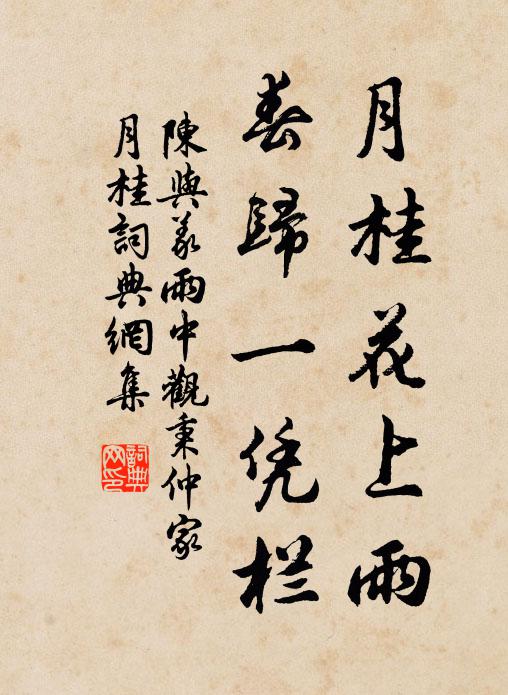 月桂花上雨
春歸一凭栏
陳與義雨中觀秉仲家
月桂詞典網集
詞典网印